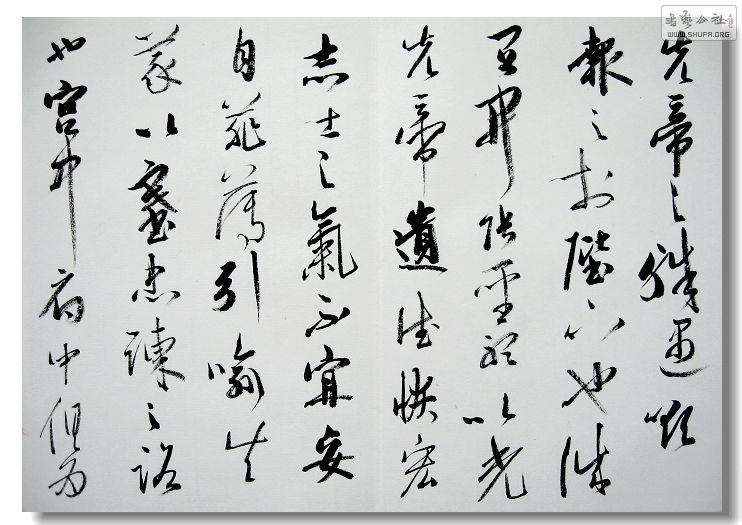 先帝之殊遇欲
報之於陛下也誠
宜開張聖聽以光
先帝遺德恢宏
志士之氣不宜妄
自菲薄引喻失
義以塞忠諫之路
也宮中府中俱為
书艺公社
WWW.SHUFA.ORG